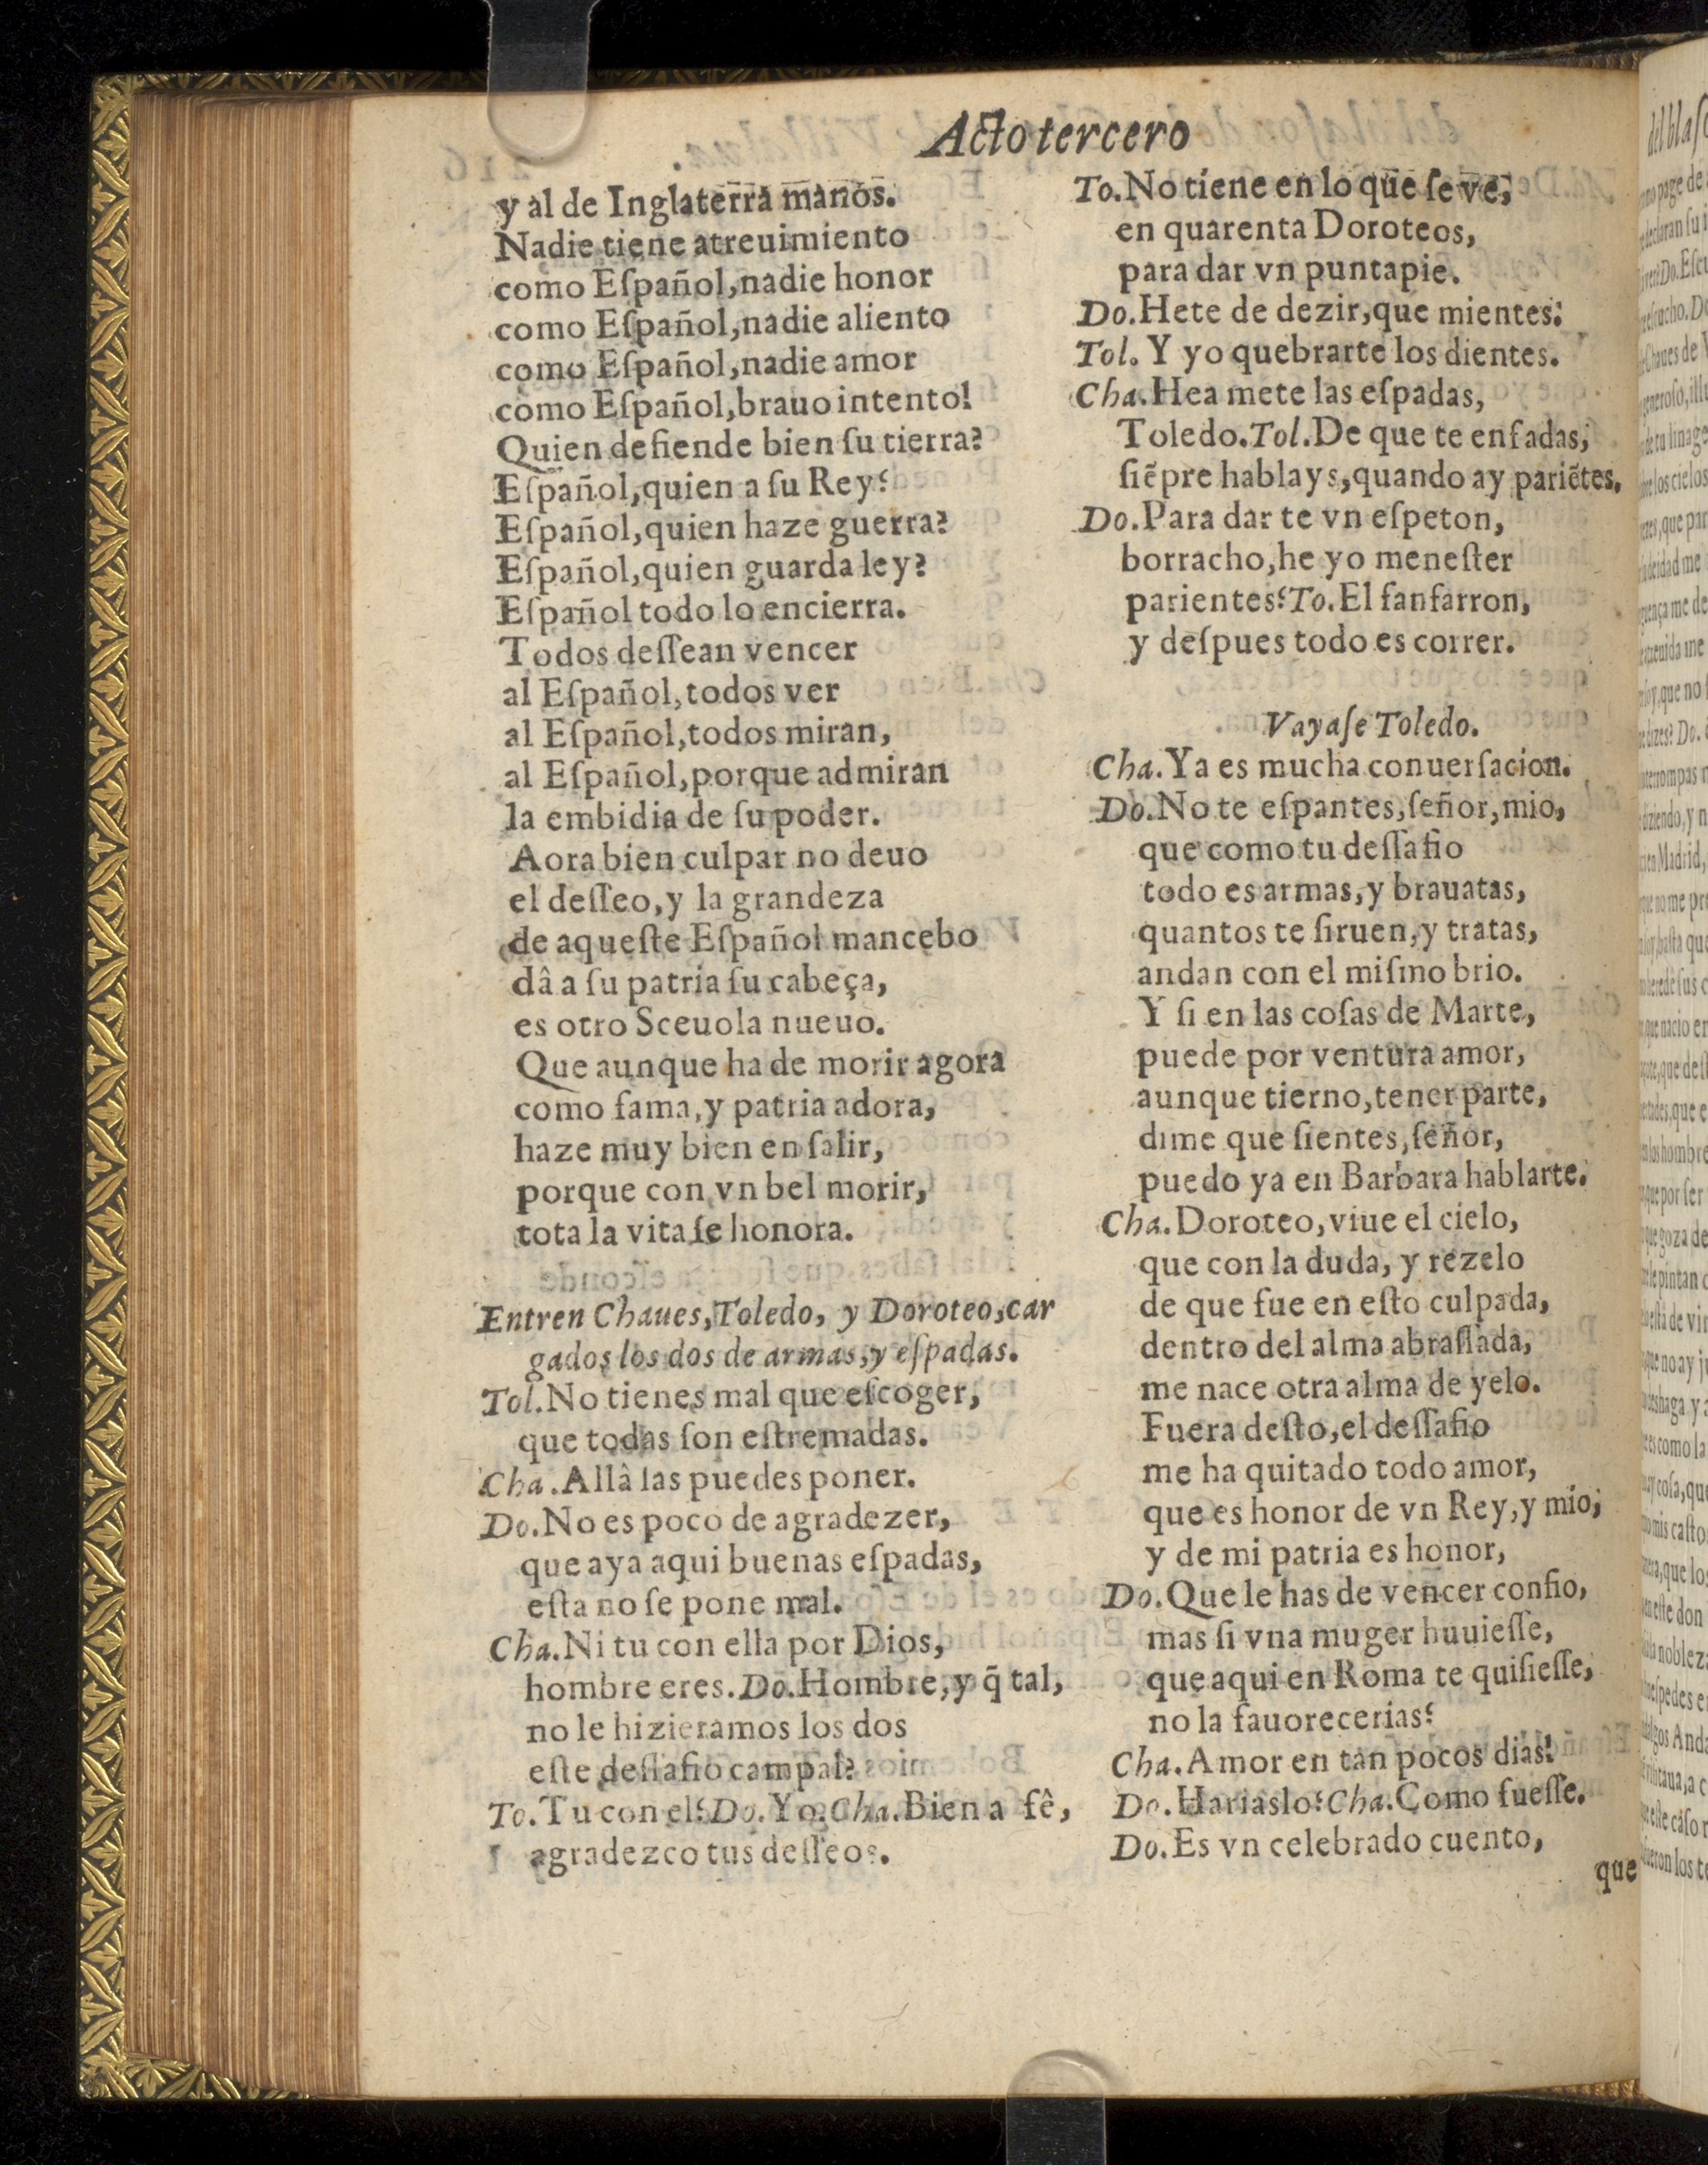 Acto tercero
y al de Inglaterra manos.
Nadie tiene atreuimiento
como Eſpañol, nadie honor
como Eſpañol, nadie aliento
como Eſpañol, nadie amor
como Eſpañol, brauo intento!
Quien defiende bien ſu tierra?
Eſpañol, quien a ſu Rey?
Eſpañol, quien haze guerra?
Eſpañol, quien guarda ley?
Eſpañol todo lo encierra.
Todos deſſean vencer
al Eſpañol, todos ver
al Eſpañol, todos miran,
al Eſpañol, porque admiran
la embidia de ſu poder.
Aora bien culpar no deuo
el deſſeo, y la grandeza
de aqueſte Eſpañol mancebo
dâ a ſu patria ſu cabeça,
es otro Sceuola nueuo.
Que aunque ha de morir agora
como fama, y patria adora,
haze muy bien en ſalir,
porque con vn bel morir,
tota la vita ſe honora.
Entren Chaues, Toledo, y Doroteo, car
gados los dos de armas, y eſpadas.
Tol. No tienes mal que eſcoger,
que todas ſon eſtremadas.
Cha. Allâ las puedes poner.
Do. No es poco de agradezer,
que aya aqui buenas eſpadas,
eſta no ſe pone mal.
Cha. Ni tu con ella por Dios,
hombre eres. Do. Hombre, y q̃ tal,
no le hizieramos los dos
eſte deſſafio campal?
To. Tu con el? Do. Yo. Cha. Bien a fê,
agradezco tus deſſeos.
To. No tiene en lo que ſe ve,
en quarenta Doroteos,
para dar vn puntapie.
Do. Hete de dezir, que mientes.
Tol. Y yo quebrarte los dientes.
Cha. Hea mete las eſpadas,
Toledo. Tol. De que te enfadas,
ſiẽpre hablays, quando ay pariẽtes.
Do. Para dar te vn eſpeton,
borracho, he yo meneſter
parientes? To. El fanfarron,
y deſpues todo es correr.
Vayaſe Toledo.
Cha. Ya es mucha conuerſacion.
Do. No te eſpantes, ſeñor, mio,
que como tu deſſafio
todo es armas, y brauatas,
quantos te ſiruen, y tratas,
andan con el miſmo brio.
Y ſi en las coſas de Marte,
puede por ventura amor,
aunque tierno, tener parte,
dime que ſientes, ſeñor,
puedo ya en Barbara hablarte.
Cha. Doroteo, viue el cielo,
que con la duda, y rezelo
de que fue en eſto culpada,
dentro del alma abraſſada,
me nace otra alma de yelo.
Fuera deſto, el deſſafio
me ha quitado todo amor,
que es honor de vn Rey, y mio,
y de mi patria es honor,
Do. Que le has de vencer confio,
mas ſi vna muger huuieſſe,
que aqui en Roma te quiſieſſe,
no la fauorecerias?
Cha. Amor en tan pocos dias!
Do. Hariaslo? Cha. Como fueſſe.
Do. Es vn celebrado cuento,
que